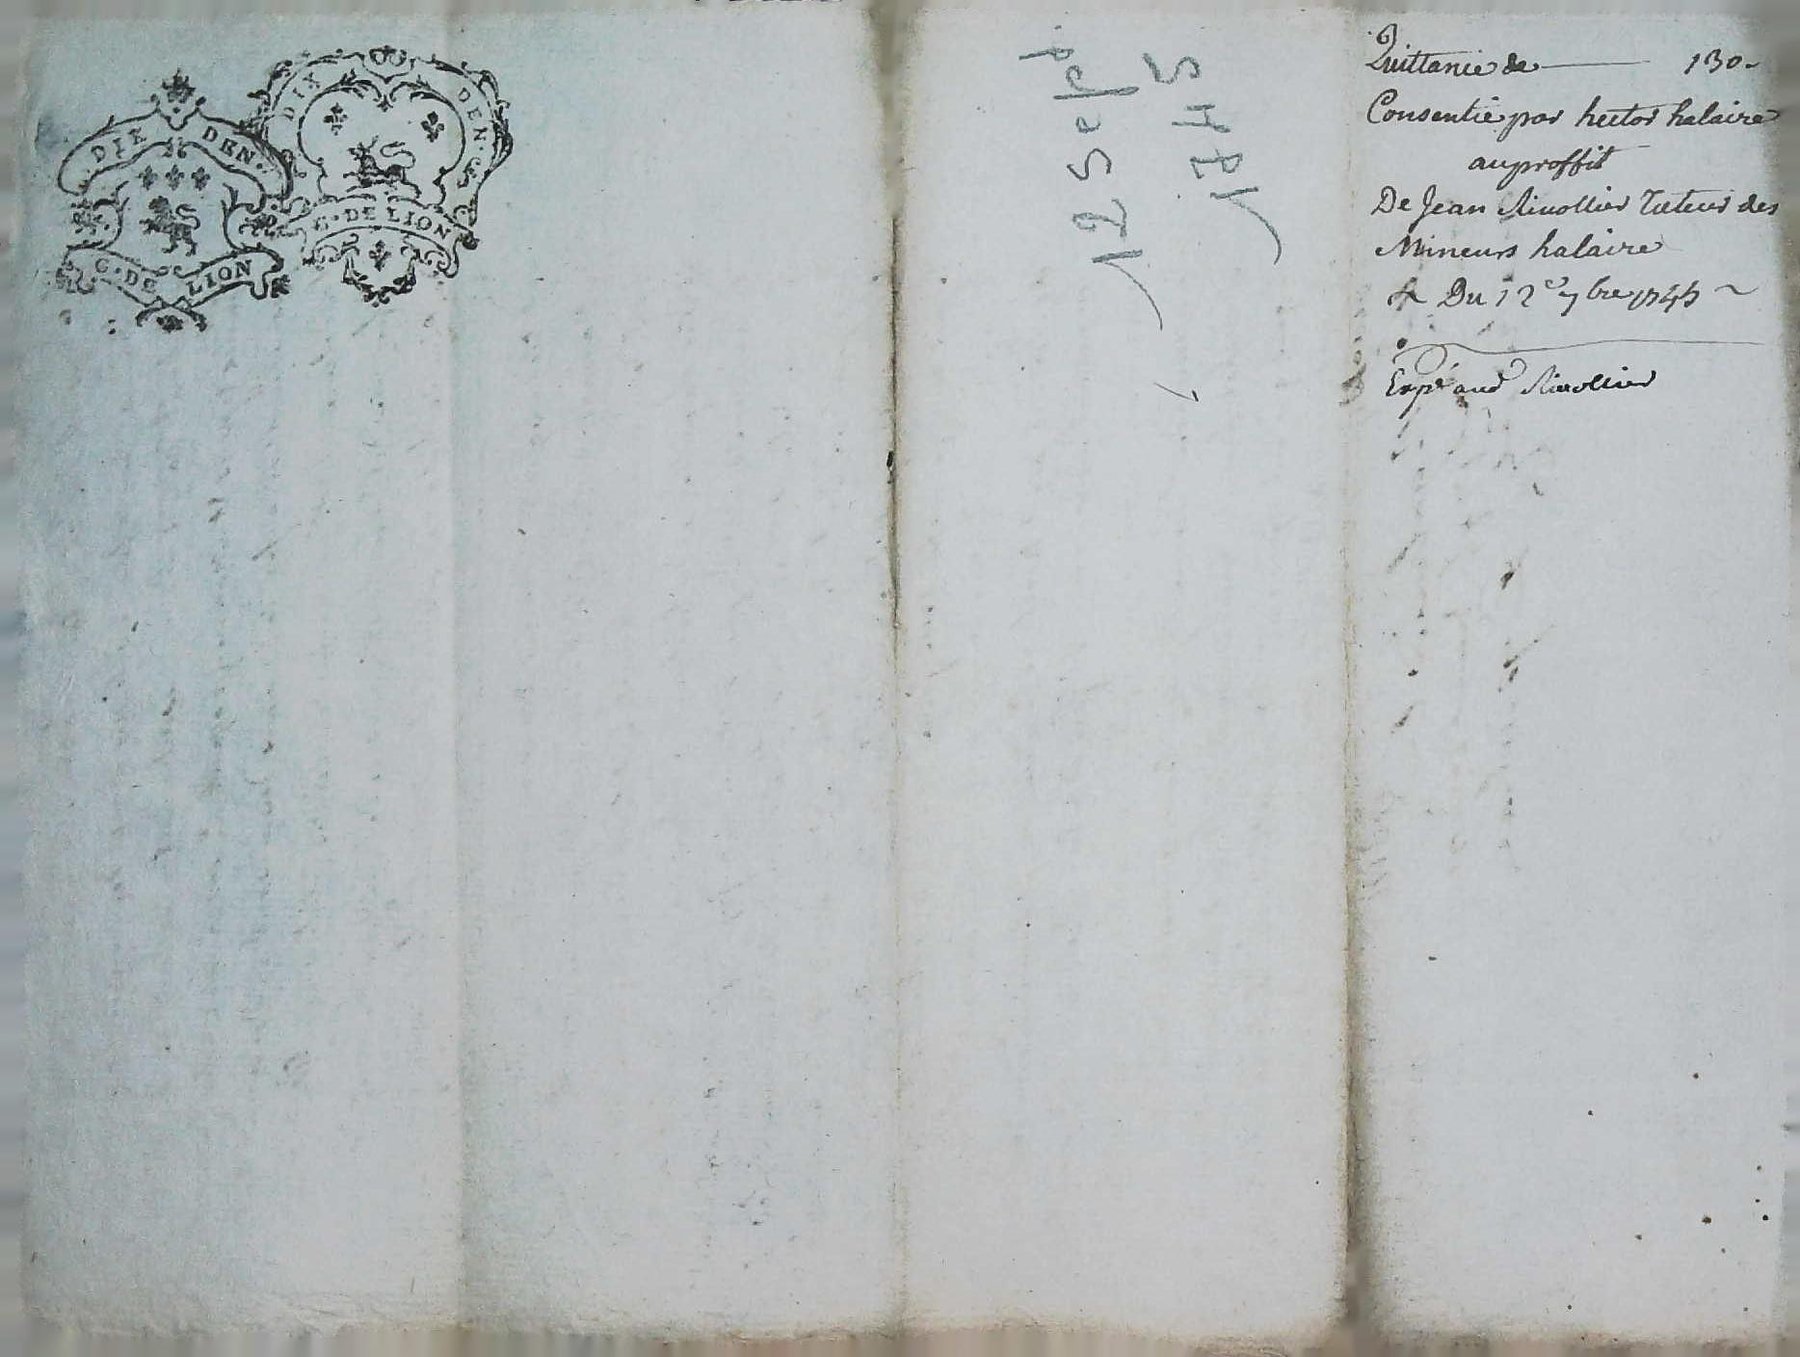 DIX DEN.
G. DE LION
DIX DEN. S
G. DE LION
1745
Quittance de 130
Consentie par hector halaire
au proffit
De Jean Rivollier Tuteur des
Mineurs halaire
Du 12e 7bre 1745
Expé aud Rivollier